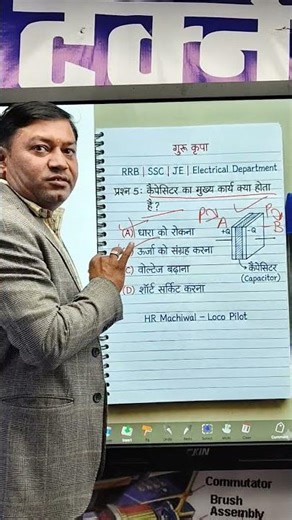 तकनी
गुरू कृपा
RRB | SSC | JE | Electrical Department
प्रश्न 5: कैपेसिटर का मुख्य कार्य क्या होता
है?
(A) धारा को रोकना
ऊर्जा को संग्रह करना
(C) वोल्टेज बढ़ाना
(D) शॉर्ट सर्किट करना
A
B
+Q
-Q
कैपेसिटर
(Capacitor)
HR Machiwal – Loco Pilot
Commutator
Brush
Assembly